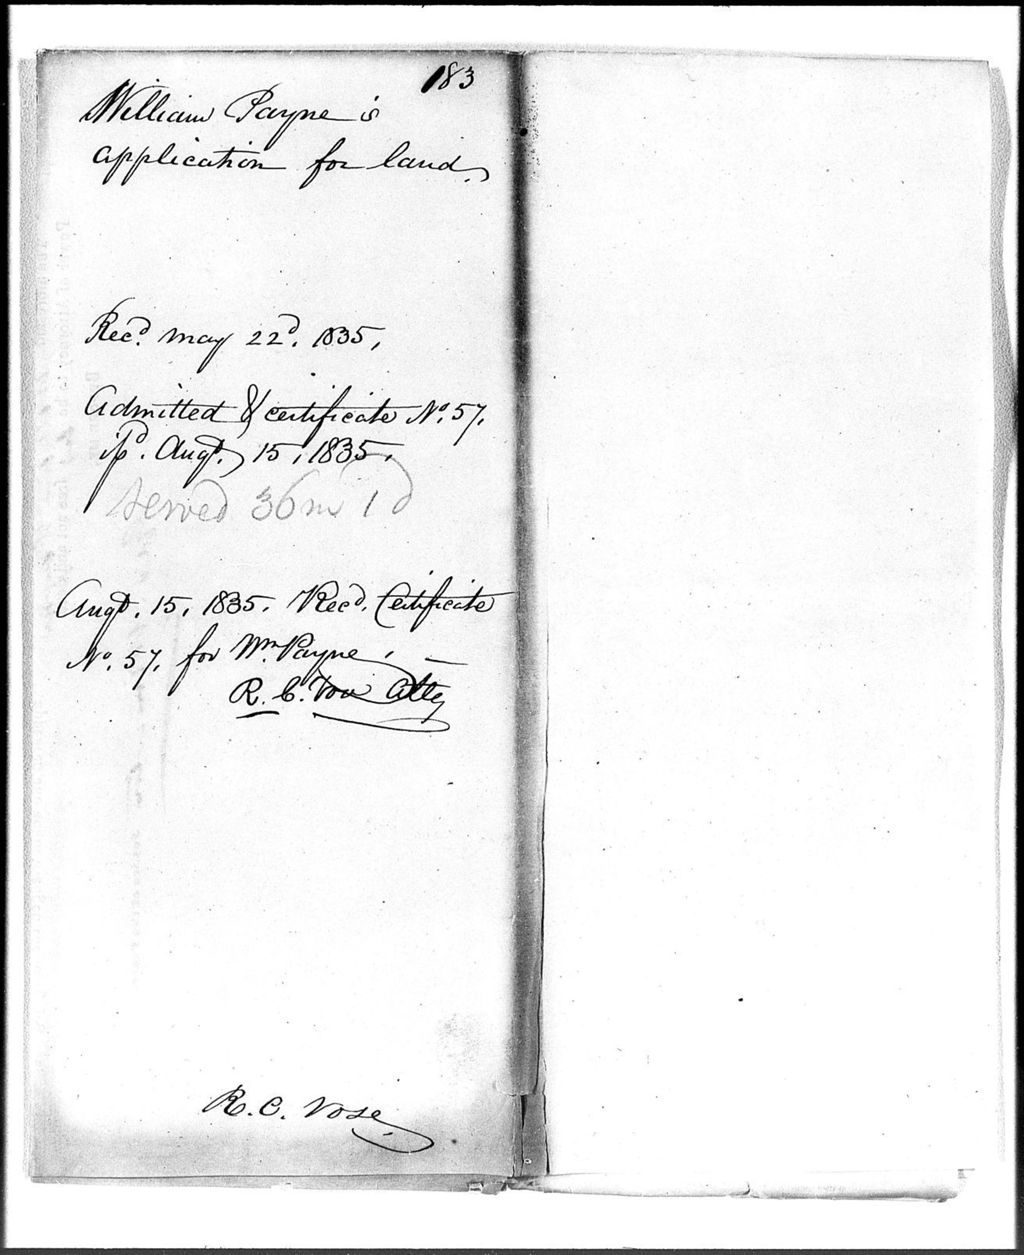 183
William Payne's
application for land.
Rec'd. May 22d. 1835,
Admitted & certificate No. 57.
isd. Augt. 15, 1835.
Served 36m 1d
Augt. 15, 1835. Rec'd. Certificate
No. 57. for Wm. Payne. —
R. C. Vose Atty
R. C. Vose